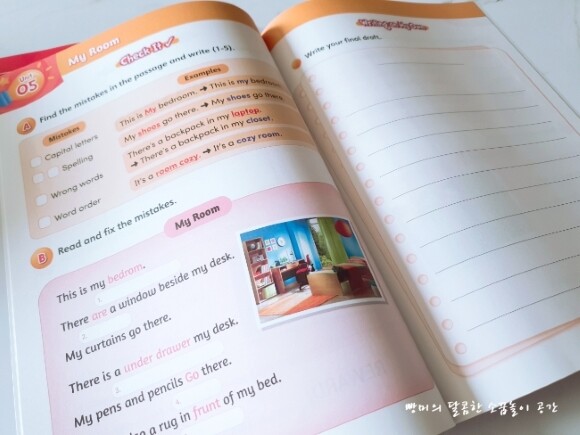 Unit
05
My Room
Check It
A Find the mistakes in the passage and write (1-5).
Mistakes
Capital letters
Spelling
Wrong words
Word order
Examples
This is My bedroom. → This is my bedroom.
My shoes go there. → My shoes go there.
There's a backpack in my laptop.
→ There's a backpack in my closet.
It's a room cozy. → It's a cozy room.
B Read and fix the mistakes.
My Room
This is my bedrom.
There are a window beside my desk.
My curtains go there.
There is a under drawer my desk.
My pens and pencils Go there.
a rug in frunt of my bed.
Write your final draft.
빵미의 달콤한 소꿉놀이 공간